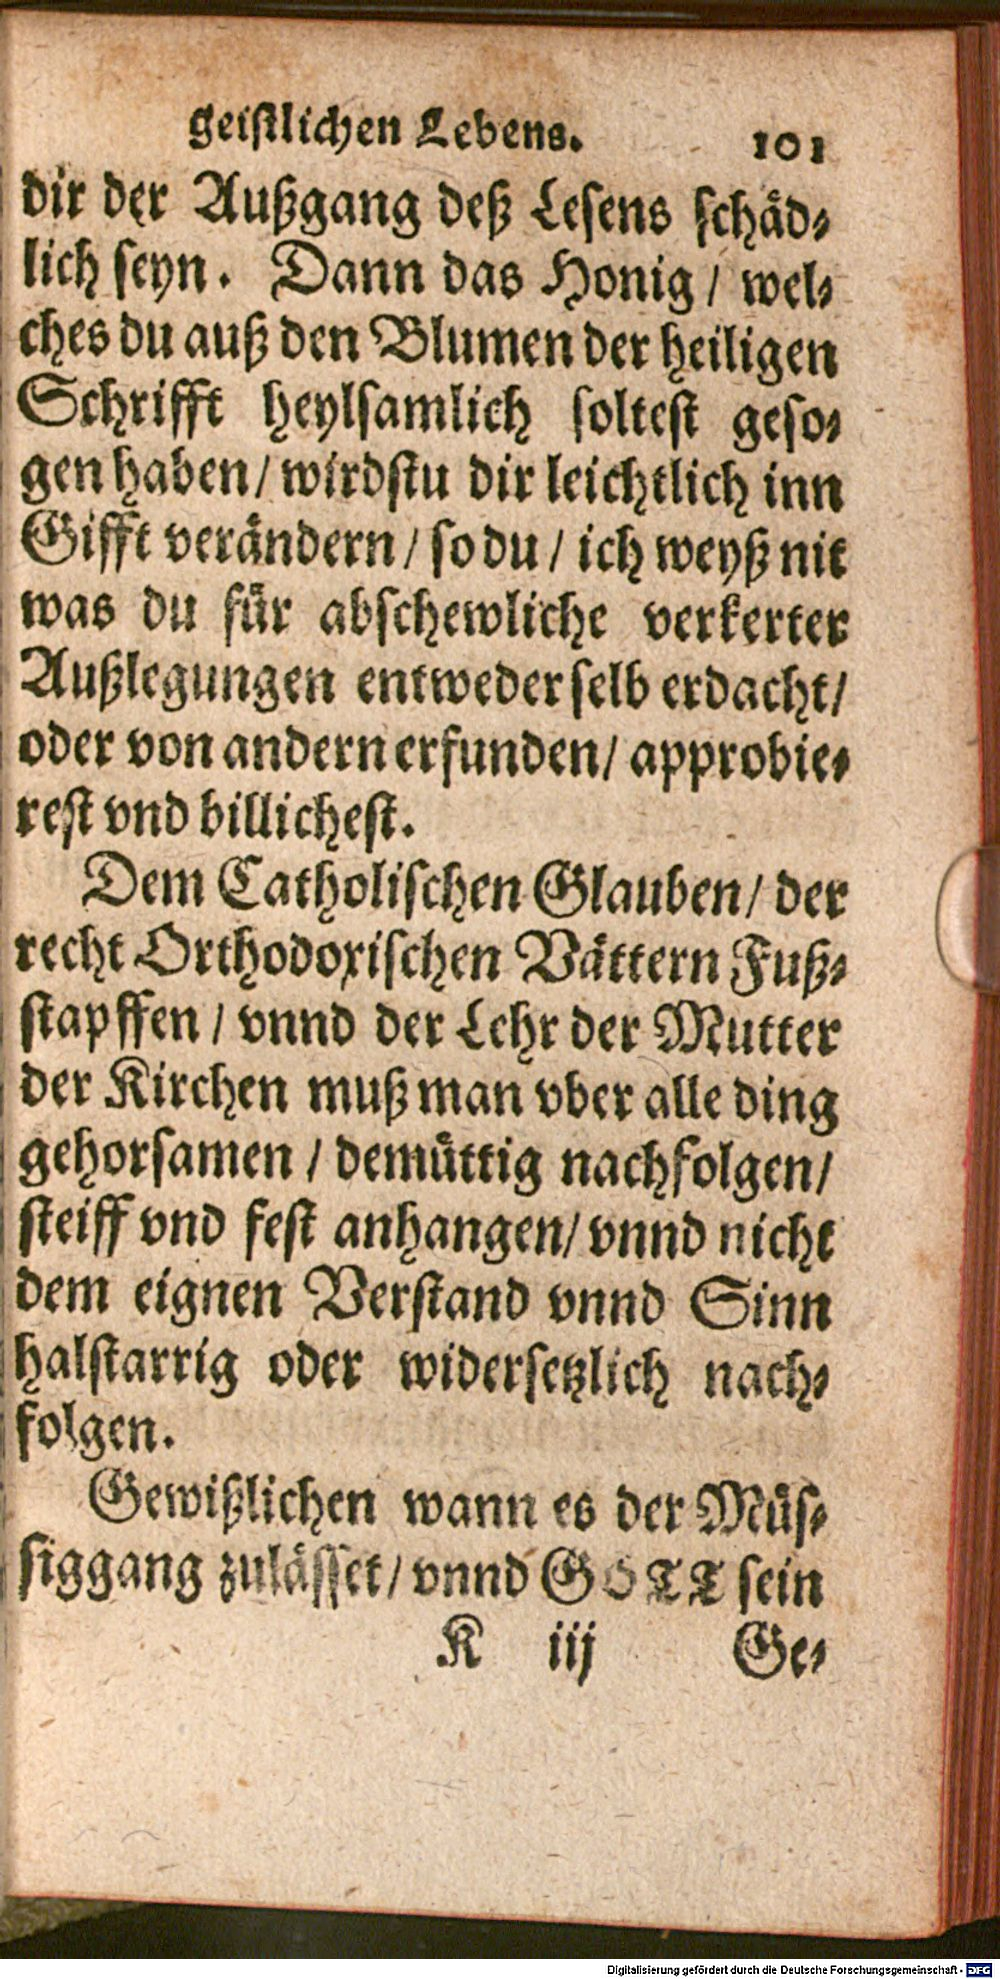 geistlichen Lebens. 101
dir der Außgang deß Lesens schäd⸗
lich seyn. Dann das Honig / wel⸗
ches du auß den Blumen der heiligen
Schrifft heylsamlich soltest geso⸗
gen haben / wirdstu dir leichtlich inn
Gifft verändern / so du / ich weyß nit
was du für abschewliche verkerter
Außlegungen entweder selb erdacht /
oder von andern erfunden / approbie⸗
rest vnd billichest.
Dem Catholischen Glauben / der
recht Orthodoxischen Vättern Fuß⸗
stapffen / vnnd der Lehr der Mutter
der Kirchen muß man vber alle ding
gehorsamen / demüttig nachfolgen /
steiff vnd fest anhangen / vnnd nicht
dem eignen Verstand vnnd Sinn
halstarrig oder widersetzlich nach⸗
folgen.
Gewißlichen wann es der Müs⸗
siggang zulässet / vnnd GOTT sein
K iij Ge⸗
Digitalisierung gefördert durch die Deutsche Forschungsgemeinschaft - DFG